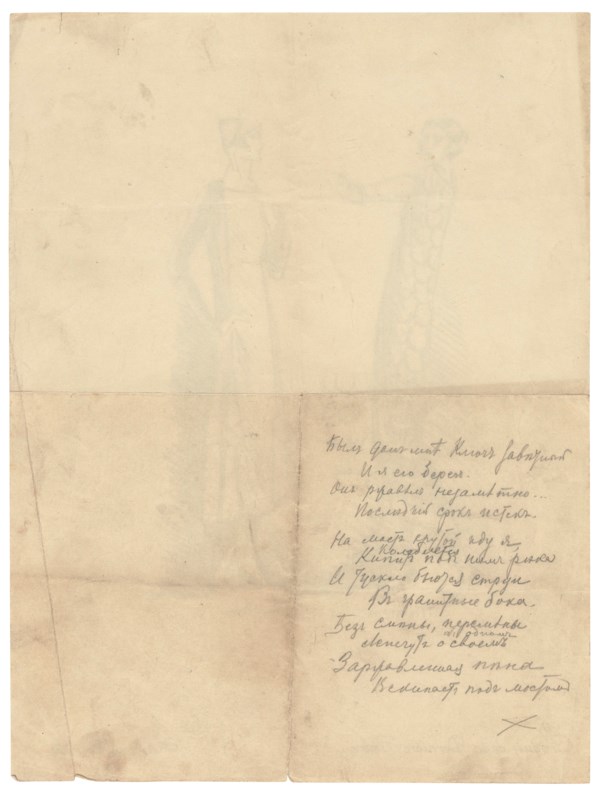 Былъ данъ мнѣ ключъ завѣтный
И я его берегъ.
Онъ ржавѣлъ незамѣтно...
Послѣдній срокъ истекъ.
На мостъ крутой иду я,
Колеблется
Кипитъ подъ нимъ рѣка
И тускло бьются струи
Въ гранитные бока.
Безъ смѣны, перемѣны
объ одномъ
Лепечутъ о своемъ
Заржавленная пѣна
Вскипаетъ подъ мостомъ